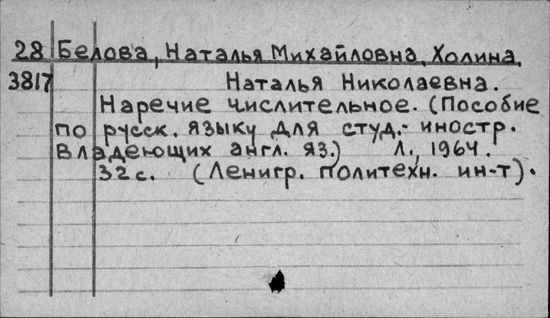 28 Белова, Наталья Михайловна, Холина,
3817 Наталья Николаевна.
Наречие числительное. (Пособие
по русск. языку для студ.- иностр.
владеющих англ. яз.) Л., 1964.
32 с. (Ленигр. политехн. ин-т).